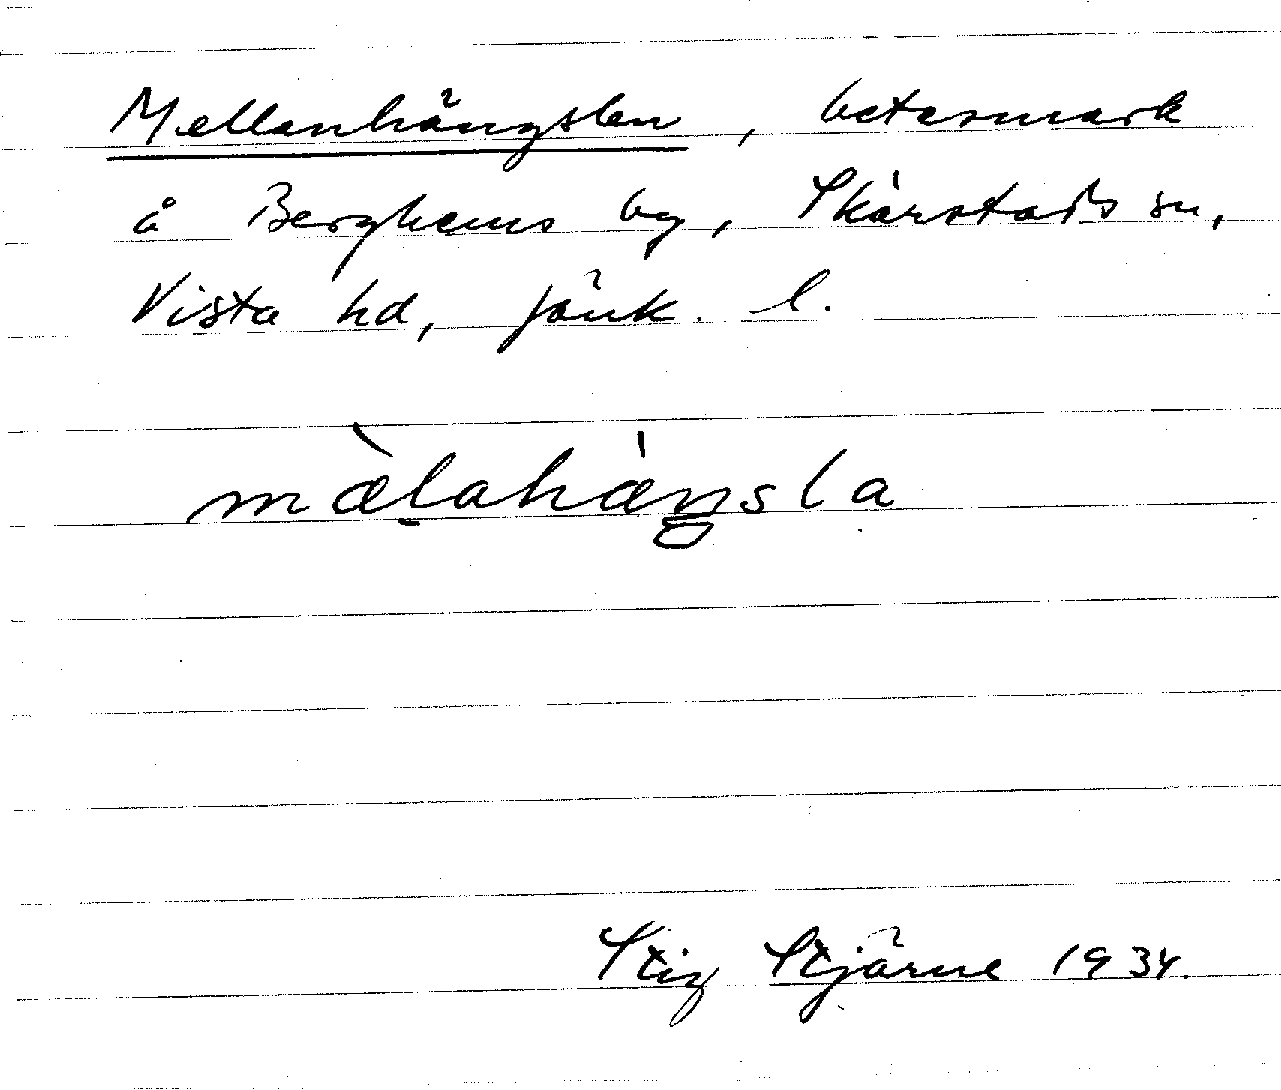 Mellanhängslan, betesmark
å Berghems by, Skärstads sn,
Vista hd, Jönk. l.
mæ̀lahæ̀ŋsla
Stig Stjärne 1934.